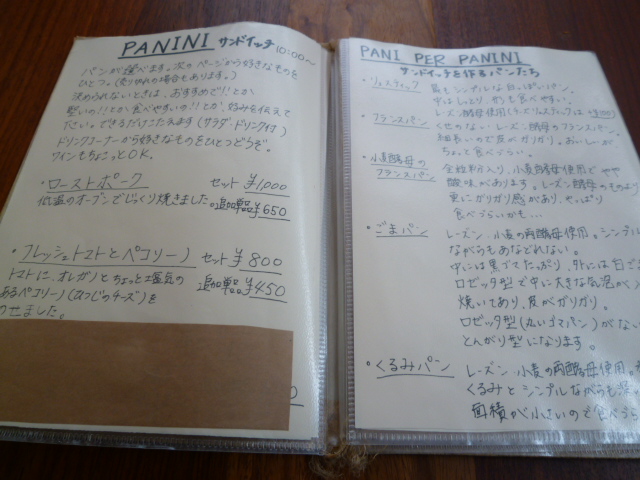 PANINI サンドイッチ 10:00〜
パンが選べます。次のページから好きなものを
ひとつ。(売り切れの場合もあります。)
決められないときは、おすすめで!!とか
堅いの!!とか食べやすいの!!とか、好みを伝えて
下さい。できるだけこたえます(サラダ・ドリンク付)
ドリンクコーナーから好きなものをひとつどうぞ。
ワインもちょっとOK。
・ローストポーク セット ¥1,000
低温のオーブンでじっくり焼きました。追加単品¥650
・フレッシュトマトとペコリーノ セット ¥800
トマトに、オレガノとちょっと塩気の 追加単品¥450
あるペコリーノ(ひつじのチーズ)を
のせました。
PANI PER PANINI
サンドイッチを作るパンたち
・リュスティック 最もシンプルな白っぽいパン。
中はしっとり、かつも食べやすい。
レーズン酵母使用
・フランスパン くせのない、レーズン酵母のフランスパン。
細長いので皮がガリガリ。おいしいが
ちょっと食べづらい。
・小麦酵母の
フランスパン 全粒粉入り、小麦酵母使用でやや
酸味があります。レーズン酵母のものより
更にガリガリ感があり、やっぱり
食べづらいかも…
・ごまパン レーズン、小麦の両酵母使用。シンプル
ながらもあなどれない。
中には黒ゴマたっぷり、外には白ゴ
ロゼッタ型で中に大きな気泡が
焼いてあり、皮がガリガリ。
ロゼッタ型(丸いゴマパン)がな
とんがり型になります。
・くるみパン レーズン、小麦の両酵母使用。
くるみとシンプルながらも深
面積が小さいので食べづら